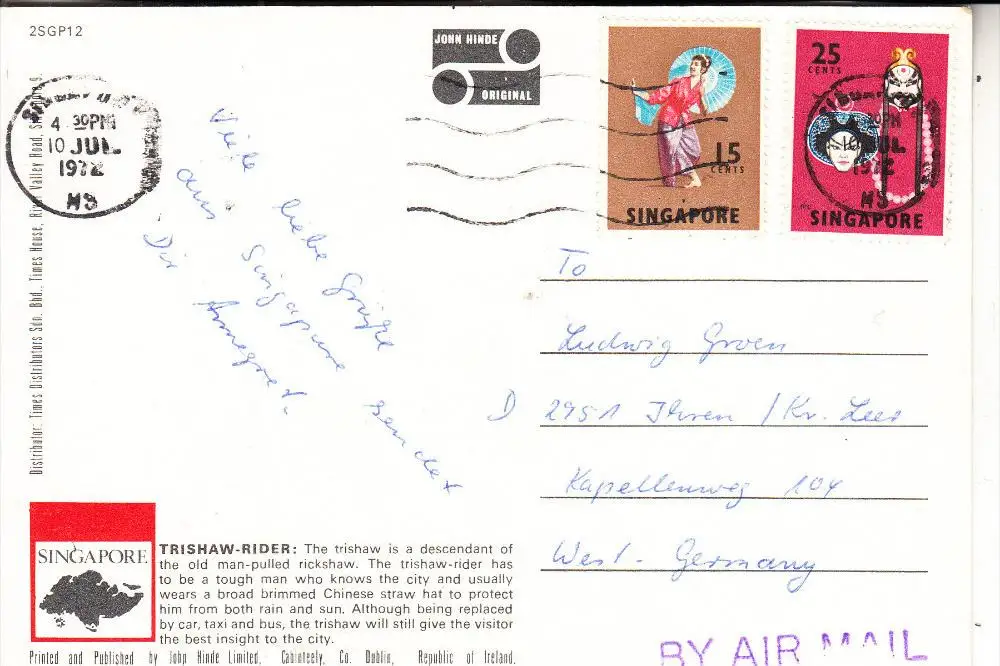 2SGP12
JOHN HINDE
ORIGINAL
4 30PM
10 JUL
1972
MS
15
CENTS
SINGAPORE
25
CENTS
SINGAPORE
30PM
JUL
1972
MS
Viele liebe Grüße
aus Singapore sendet
Dir Annegret.
To
Ludwig Groen
D 2951 Ihren / Kr. Leer
Kapellenweg 104
West-Germany
Distributor: Times Distributors Sdn. Bhd., Times House, River Valley Road, Singapore 9.
SINGAPORE
TRISHAW-RIDER: The trishaw is a descendant of
the old man-pulled rickshaw. The trishaw-rider has
to be a tough man who knows the city and usually
wears a broad brimmed Chinese straw hat to protect
him from both rain and sun. Although being replaced
by car, taxi and bus, the trishaw will still give the visitor
the best insight to the city.
Printed and Published by John Hinde Limited, Cabinteely, Co. Dublin, Republic of Ireland.
BY AIR MAIL